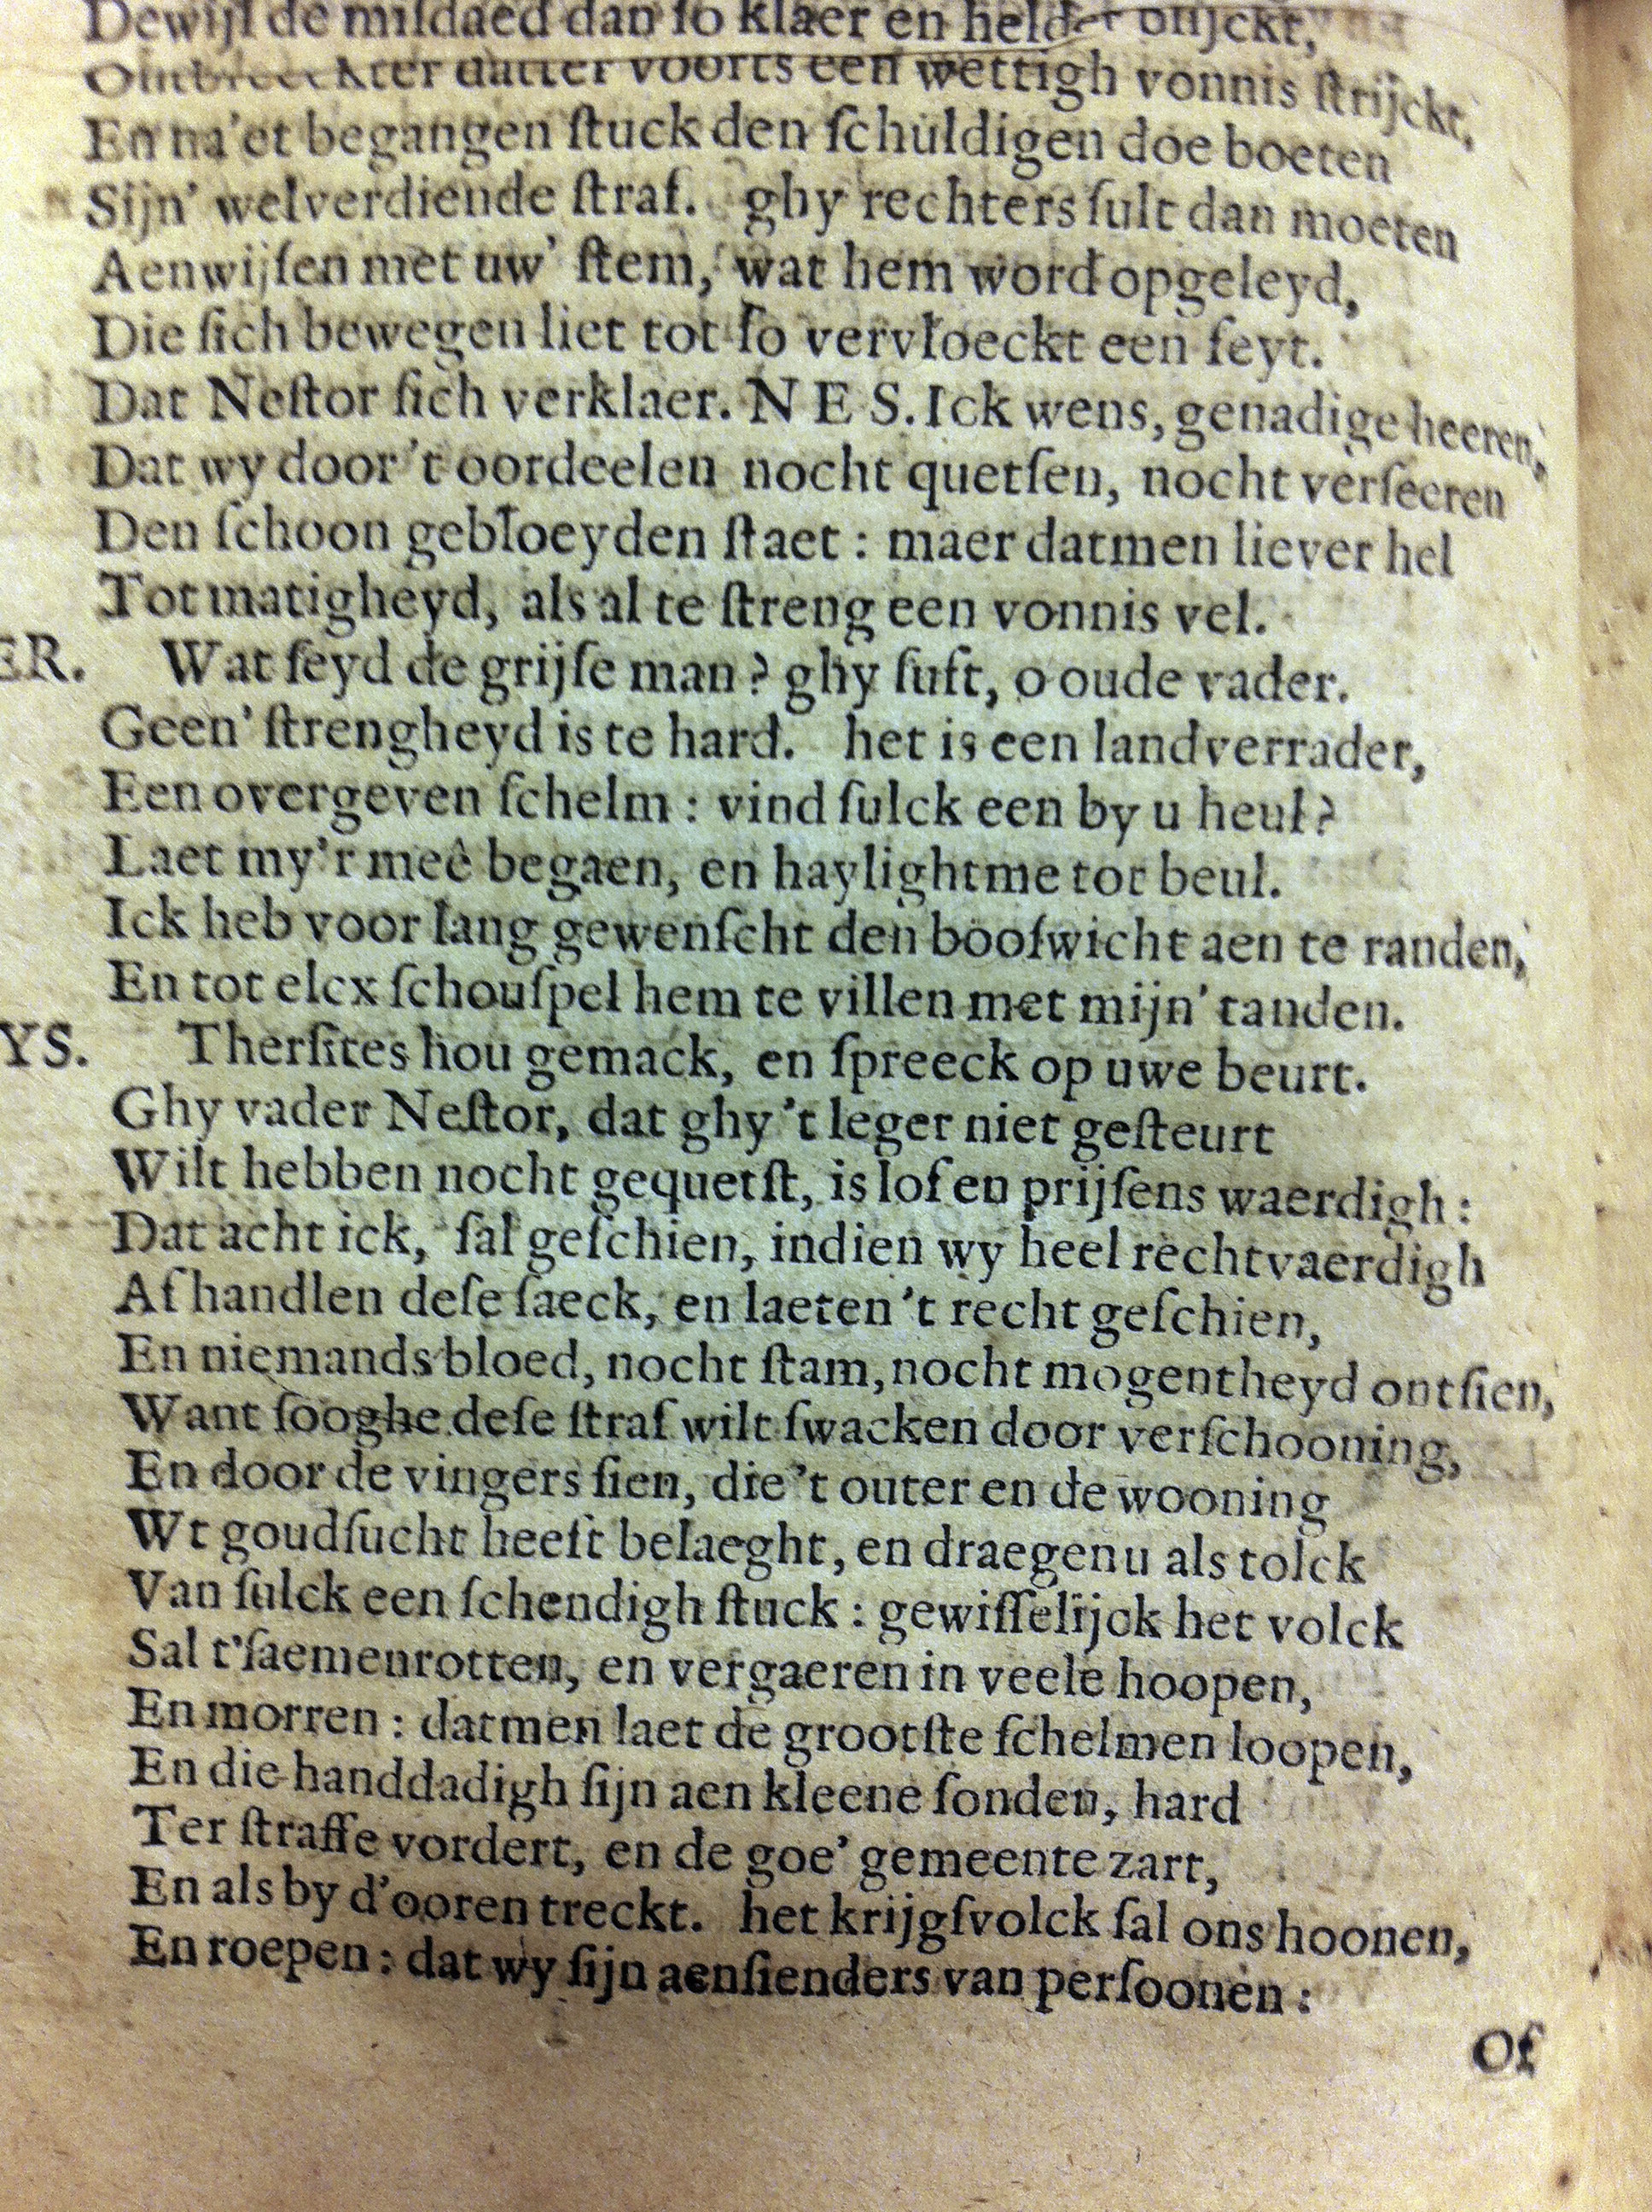 Dewijl de miſdaed dan ſo klaer en helder blijckt,
datter voorts een wettigh vonnis ſtrijckt,
En na'et begangen ſtuck den ſchuldigen doe boeten
Sijn' welverdiende ſtraf. ghy rechters ſult dan moeten
Aenwijſen met uw' ſtem, wat hem word opgeleyd,
Die ſich bewegen liet tot ſo vervloeckt een feyt.
Dat Neſtor ſich verklaer. NES. Ick wens, genadige heeren,
Dat wy door 't oordeelen nocht quetſen, nocht verſeeren
Den ſchoon gebloeyden ſtaet : maer datmen liever hel
Tot matigheyd, als al te ſtreng een vonnis vel.
ER. Wat ſeyd de grijſe man ? ghy ſuft, o oude vader.
Geen' ſtrengheyd is te hard. het is een landverrader,
Een overgeven ſchelm : vind ſulck een by u heul ?
Laet my'r meê begaen, en haylightme tot beul.
Ick heb voor lang gewenſcht den booſwicht aen te randen,
En tot elcx ſchouſpel hem te villen met mijn' tanden.
YS. Therſites hou gemack, en ſpreeck op uwe beurt.
Ghy vader Neſtor, dat ghy 't leger niet geſteurt
Wilt hebben nocht gequetſt, is lof en prijſens waerdigh :
Dat acht ick, ſal geſchien, indien wy heel rechtvaerdigh
Af handlen deſe ſaeck, en laeten 't recht geſchien,
En niemands bloed, nocht ſtam, nocht mogentheyd ontſien,
Want ſooghe deſe ſtraf wilt ſwacken door verſchooning,
En door de vingers ſien, die 't outer en de wooning
Wt goudſucht heeft belaeght, en draegen u als tolck
Van ſulck een ſchendigh ſtuck : gewiſſelijck het volck
Sal t'ſaemenrotten, en vergaeren in veele hoopen,
En morren : datmen laet de grootſte ſchelmen loopen,
En die handdadigh ſijn aen kleene ſonden, hard
Ter ſtraffe vordert, en de goe' gemeente zart,
En als by d'ooren treckt. het krijgſvolck ſal ons hoonen,
En roepen : dat wy ſijn aenſienders van perſoonen :
Of